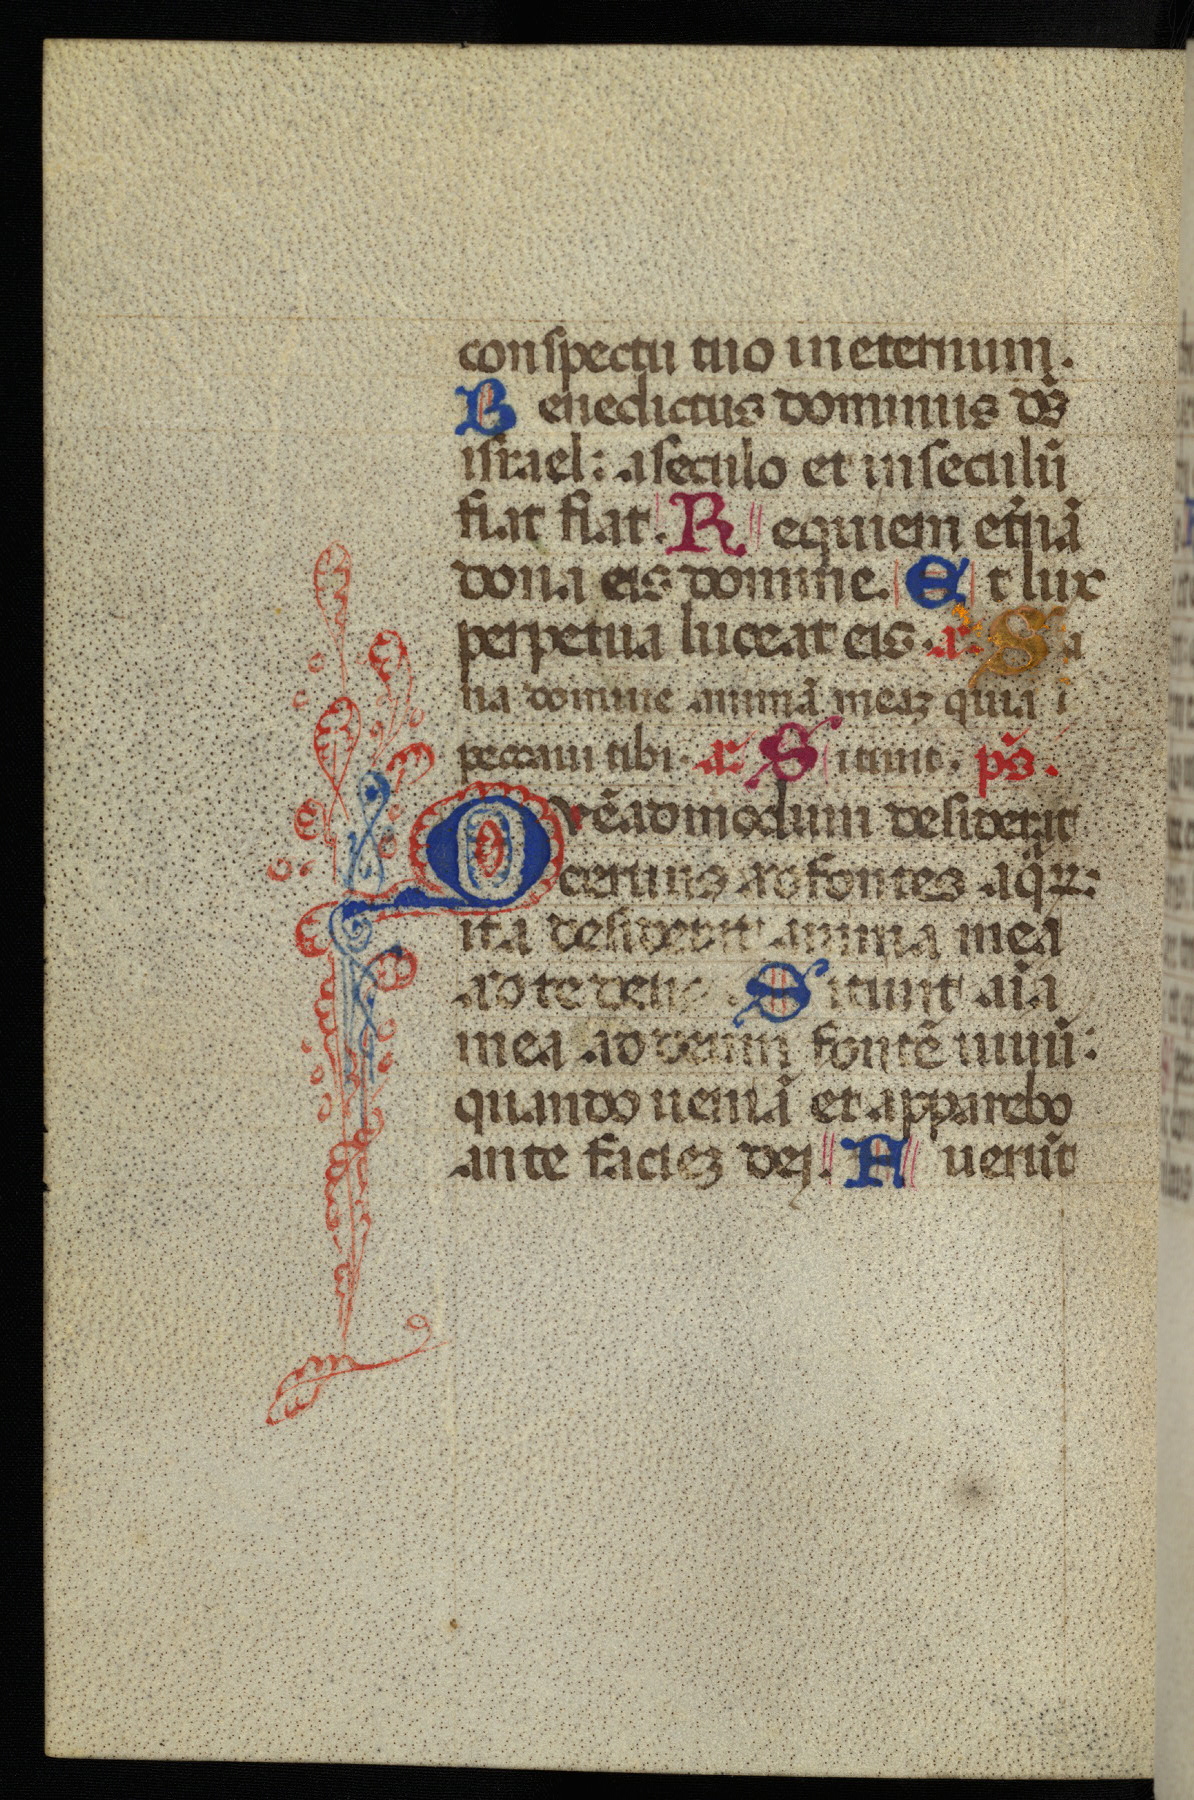 conspectu tuo in eternum.
Benedictus dominus de᷒
israel: a seculo et in seculũ
fiat fiat. Requiem et̃nã
dona eis domine. Et lux
perpetua luceat eis. a᷒. Sa
na domine animã meaz quia
peccaui tibi. a᷒ Sitiuit. ps̃.
Quẽadmodum desiderat
ceruus ad fontes aqr̃:
ita desiderat anima mea
ad te deus. Sitiuit aĩa
mea ad deum fontẽ uiuũ:
quando ueniã et apparebo
ante faciez dei. Fuerũt